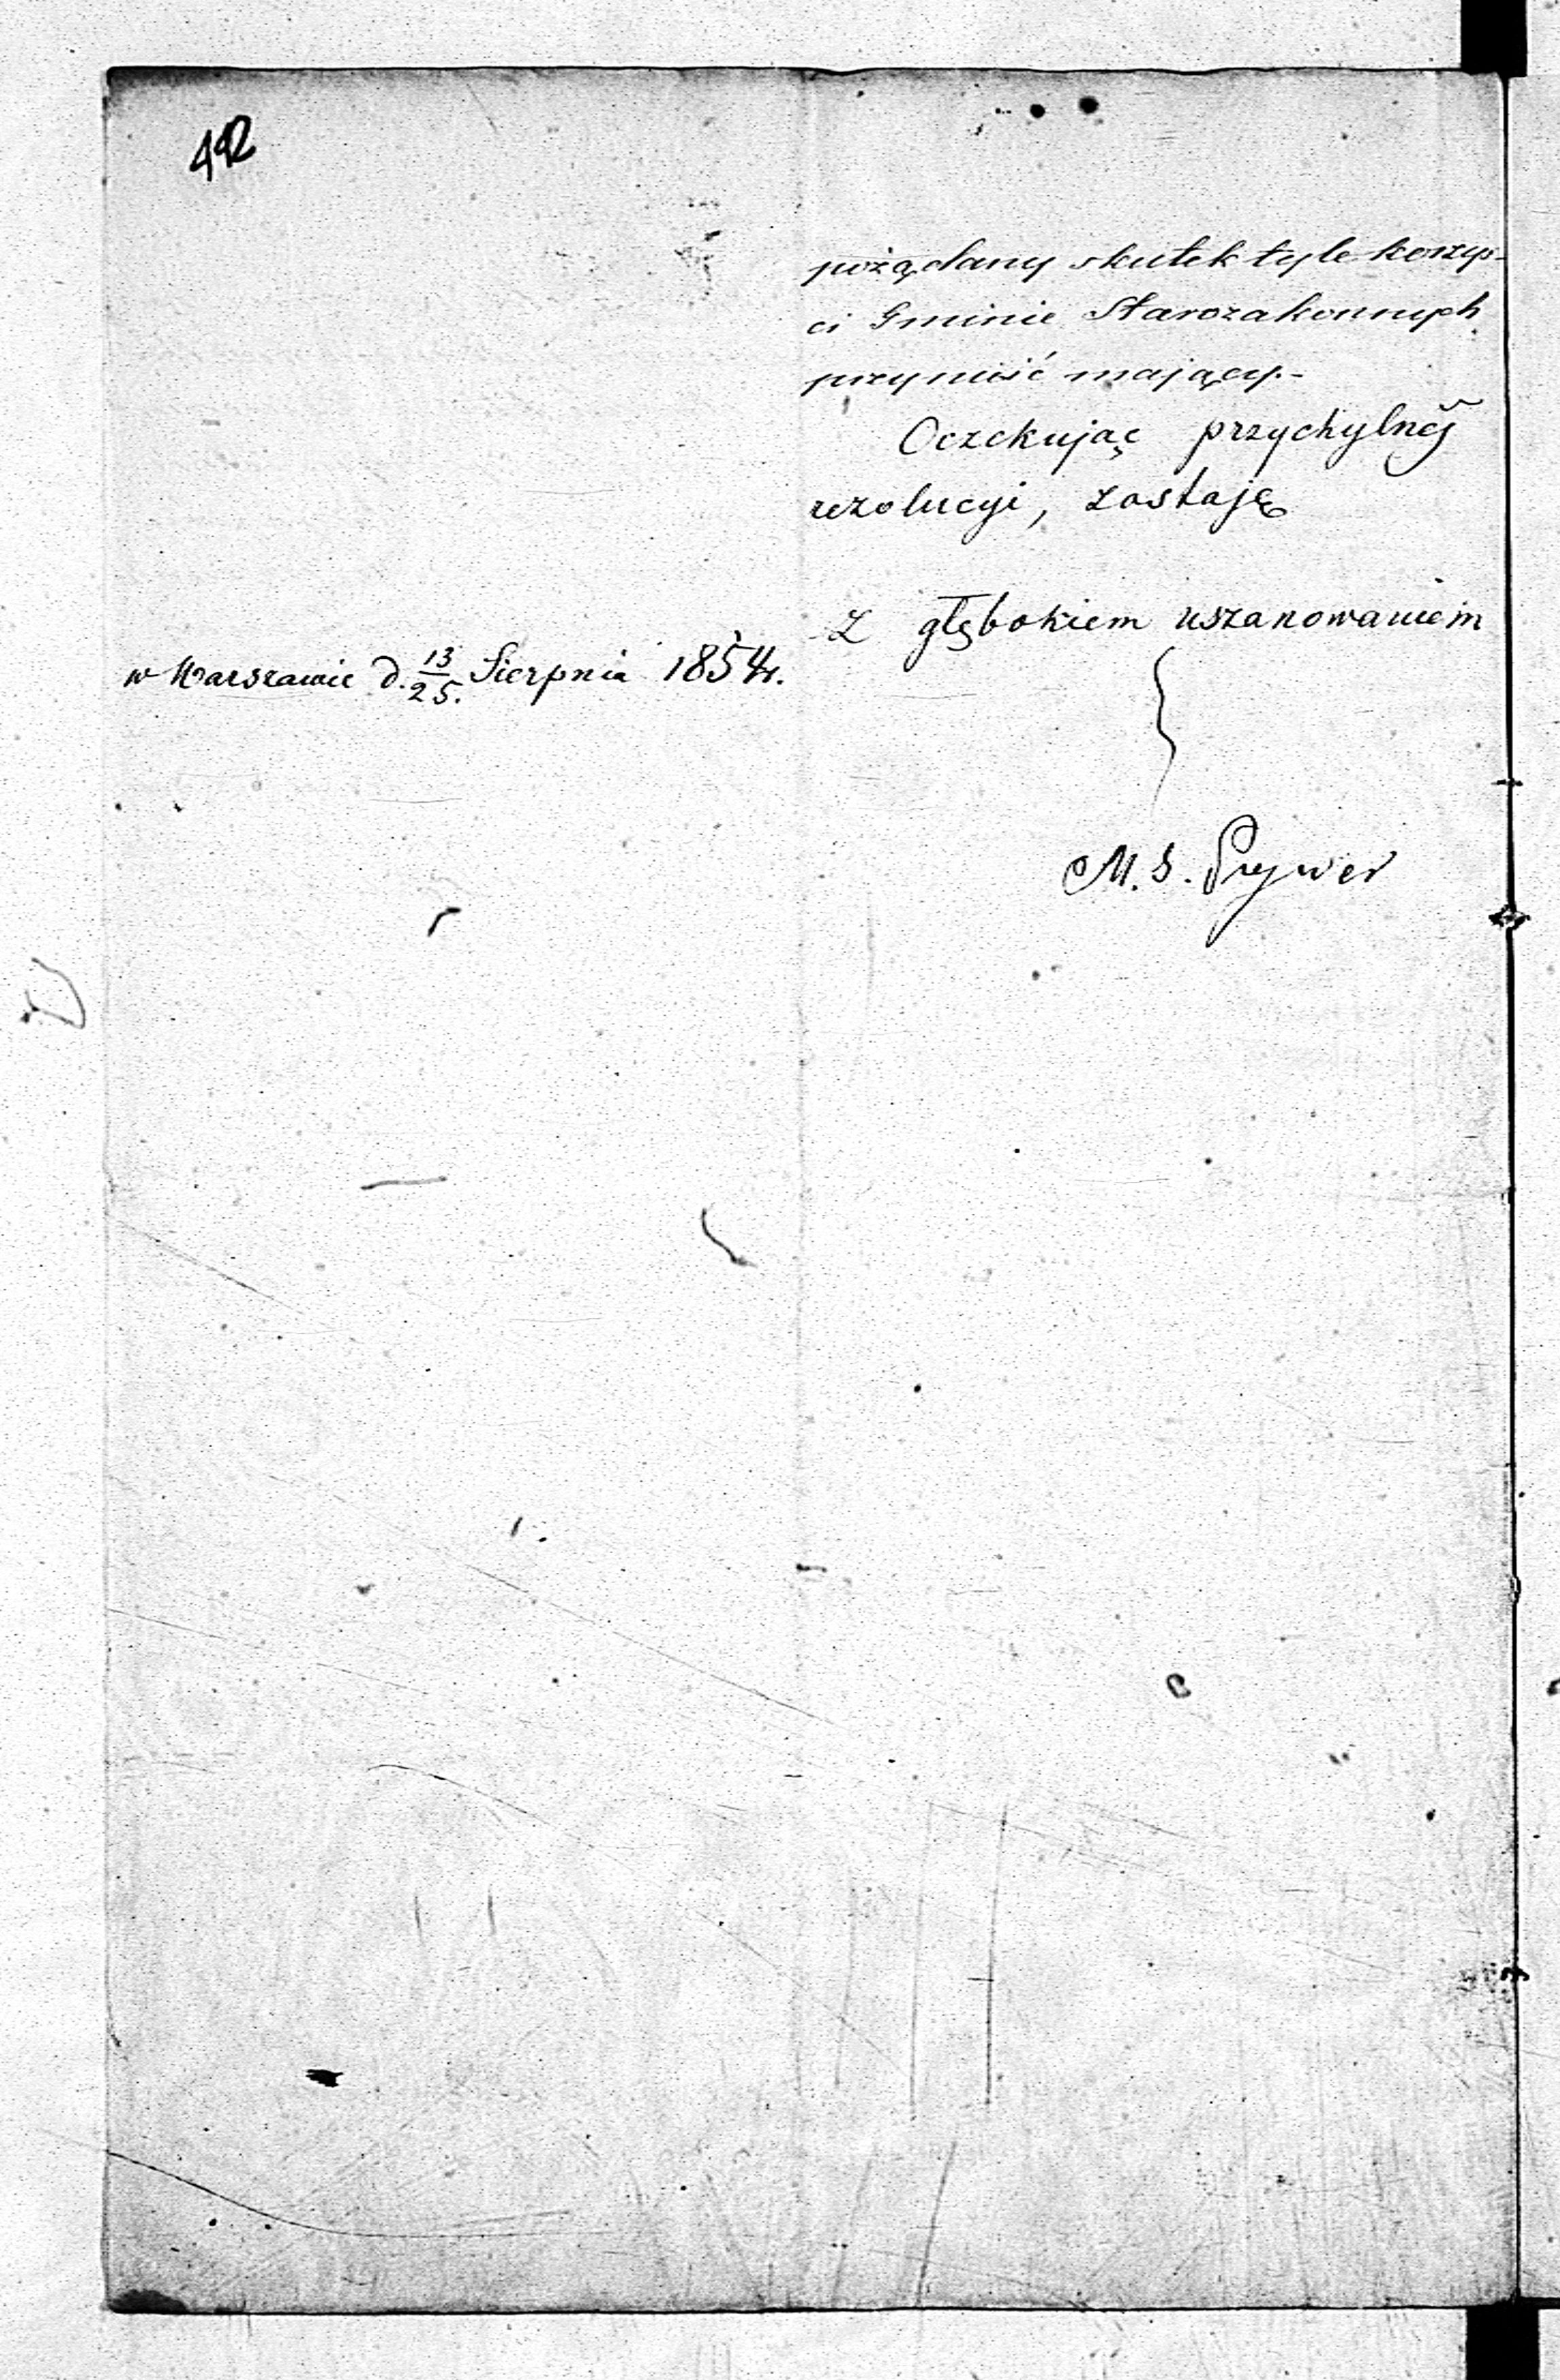 492
pożądany skutek tyle korzyś-
ci Gminie Starozakonnych
przynieść mający.-
Oczekując przychylnéj
rezolucyi, zostaję
Z głębokiem uszanowaniem
w Warszawie d. 13/25. Sierpnia 1854 r.
M. S.